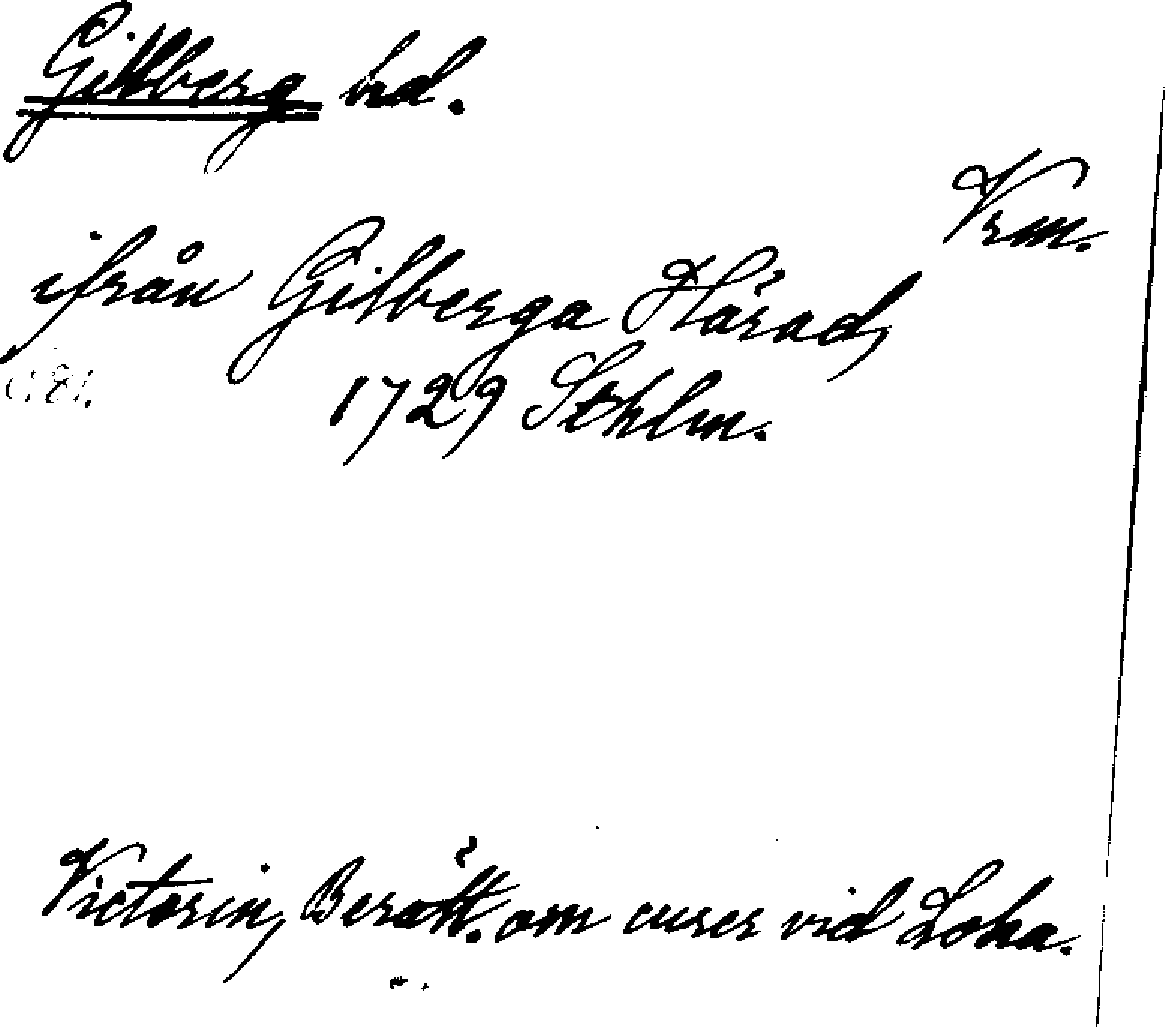 Gillberg hd.
Vrm.
ifrån Gilberga Härad,
1729 Sthlm.
Victorin, Berätt. om curer vid Loka.